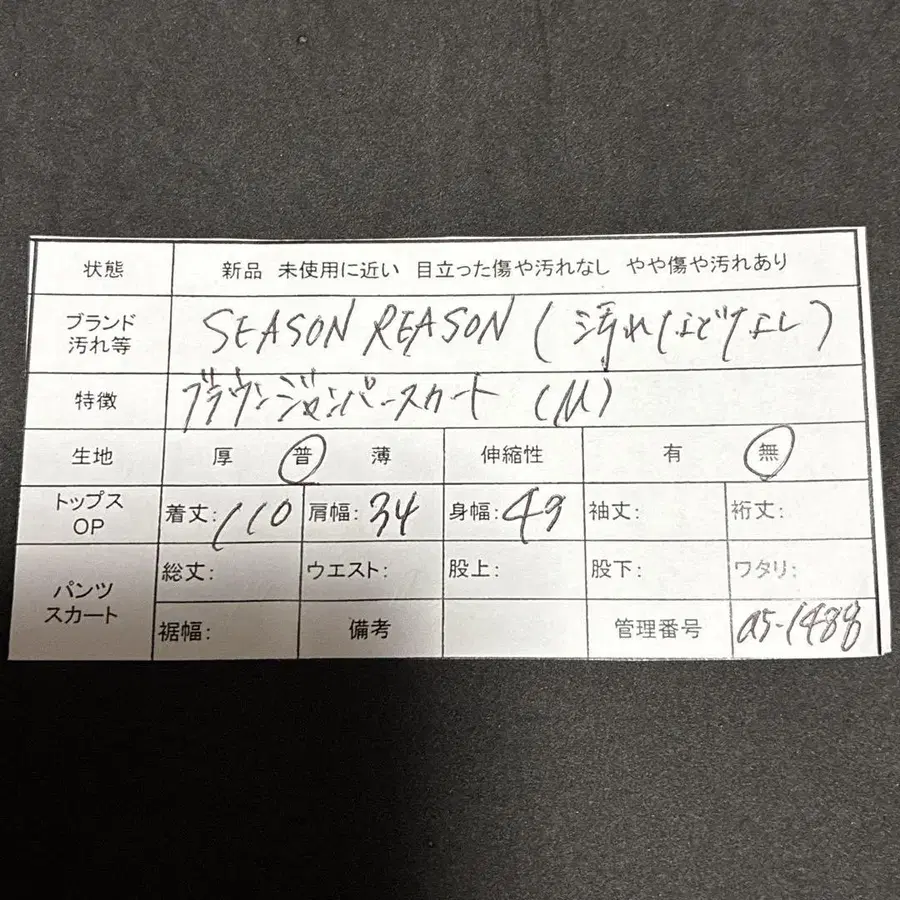 状態 新品 未使用に近い 目立った傷や汚れなし やや傷や汚れあり
ブランド
汚れ等 SEASON REASON (汚れなどなし)
特徴 ブラウンジャンパースカート (M)
生地 厚 普 薄 伸縮性 有 無
トップス
OP 着丈:110 肩幅:34 身幅:49 袖丈: 裄丈:
パンツ
スカート 総丈: ウエスト: 股上: 股下: ワタリ:
裾幅: 備考 管理番号 a5-1488